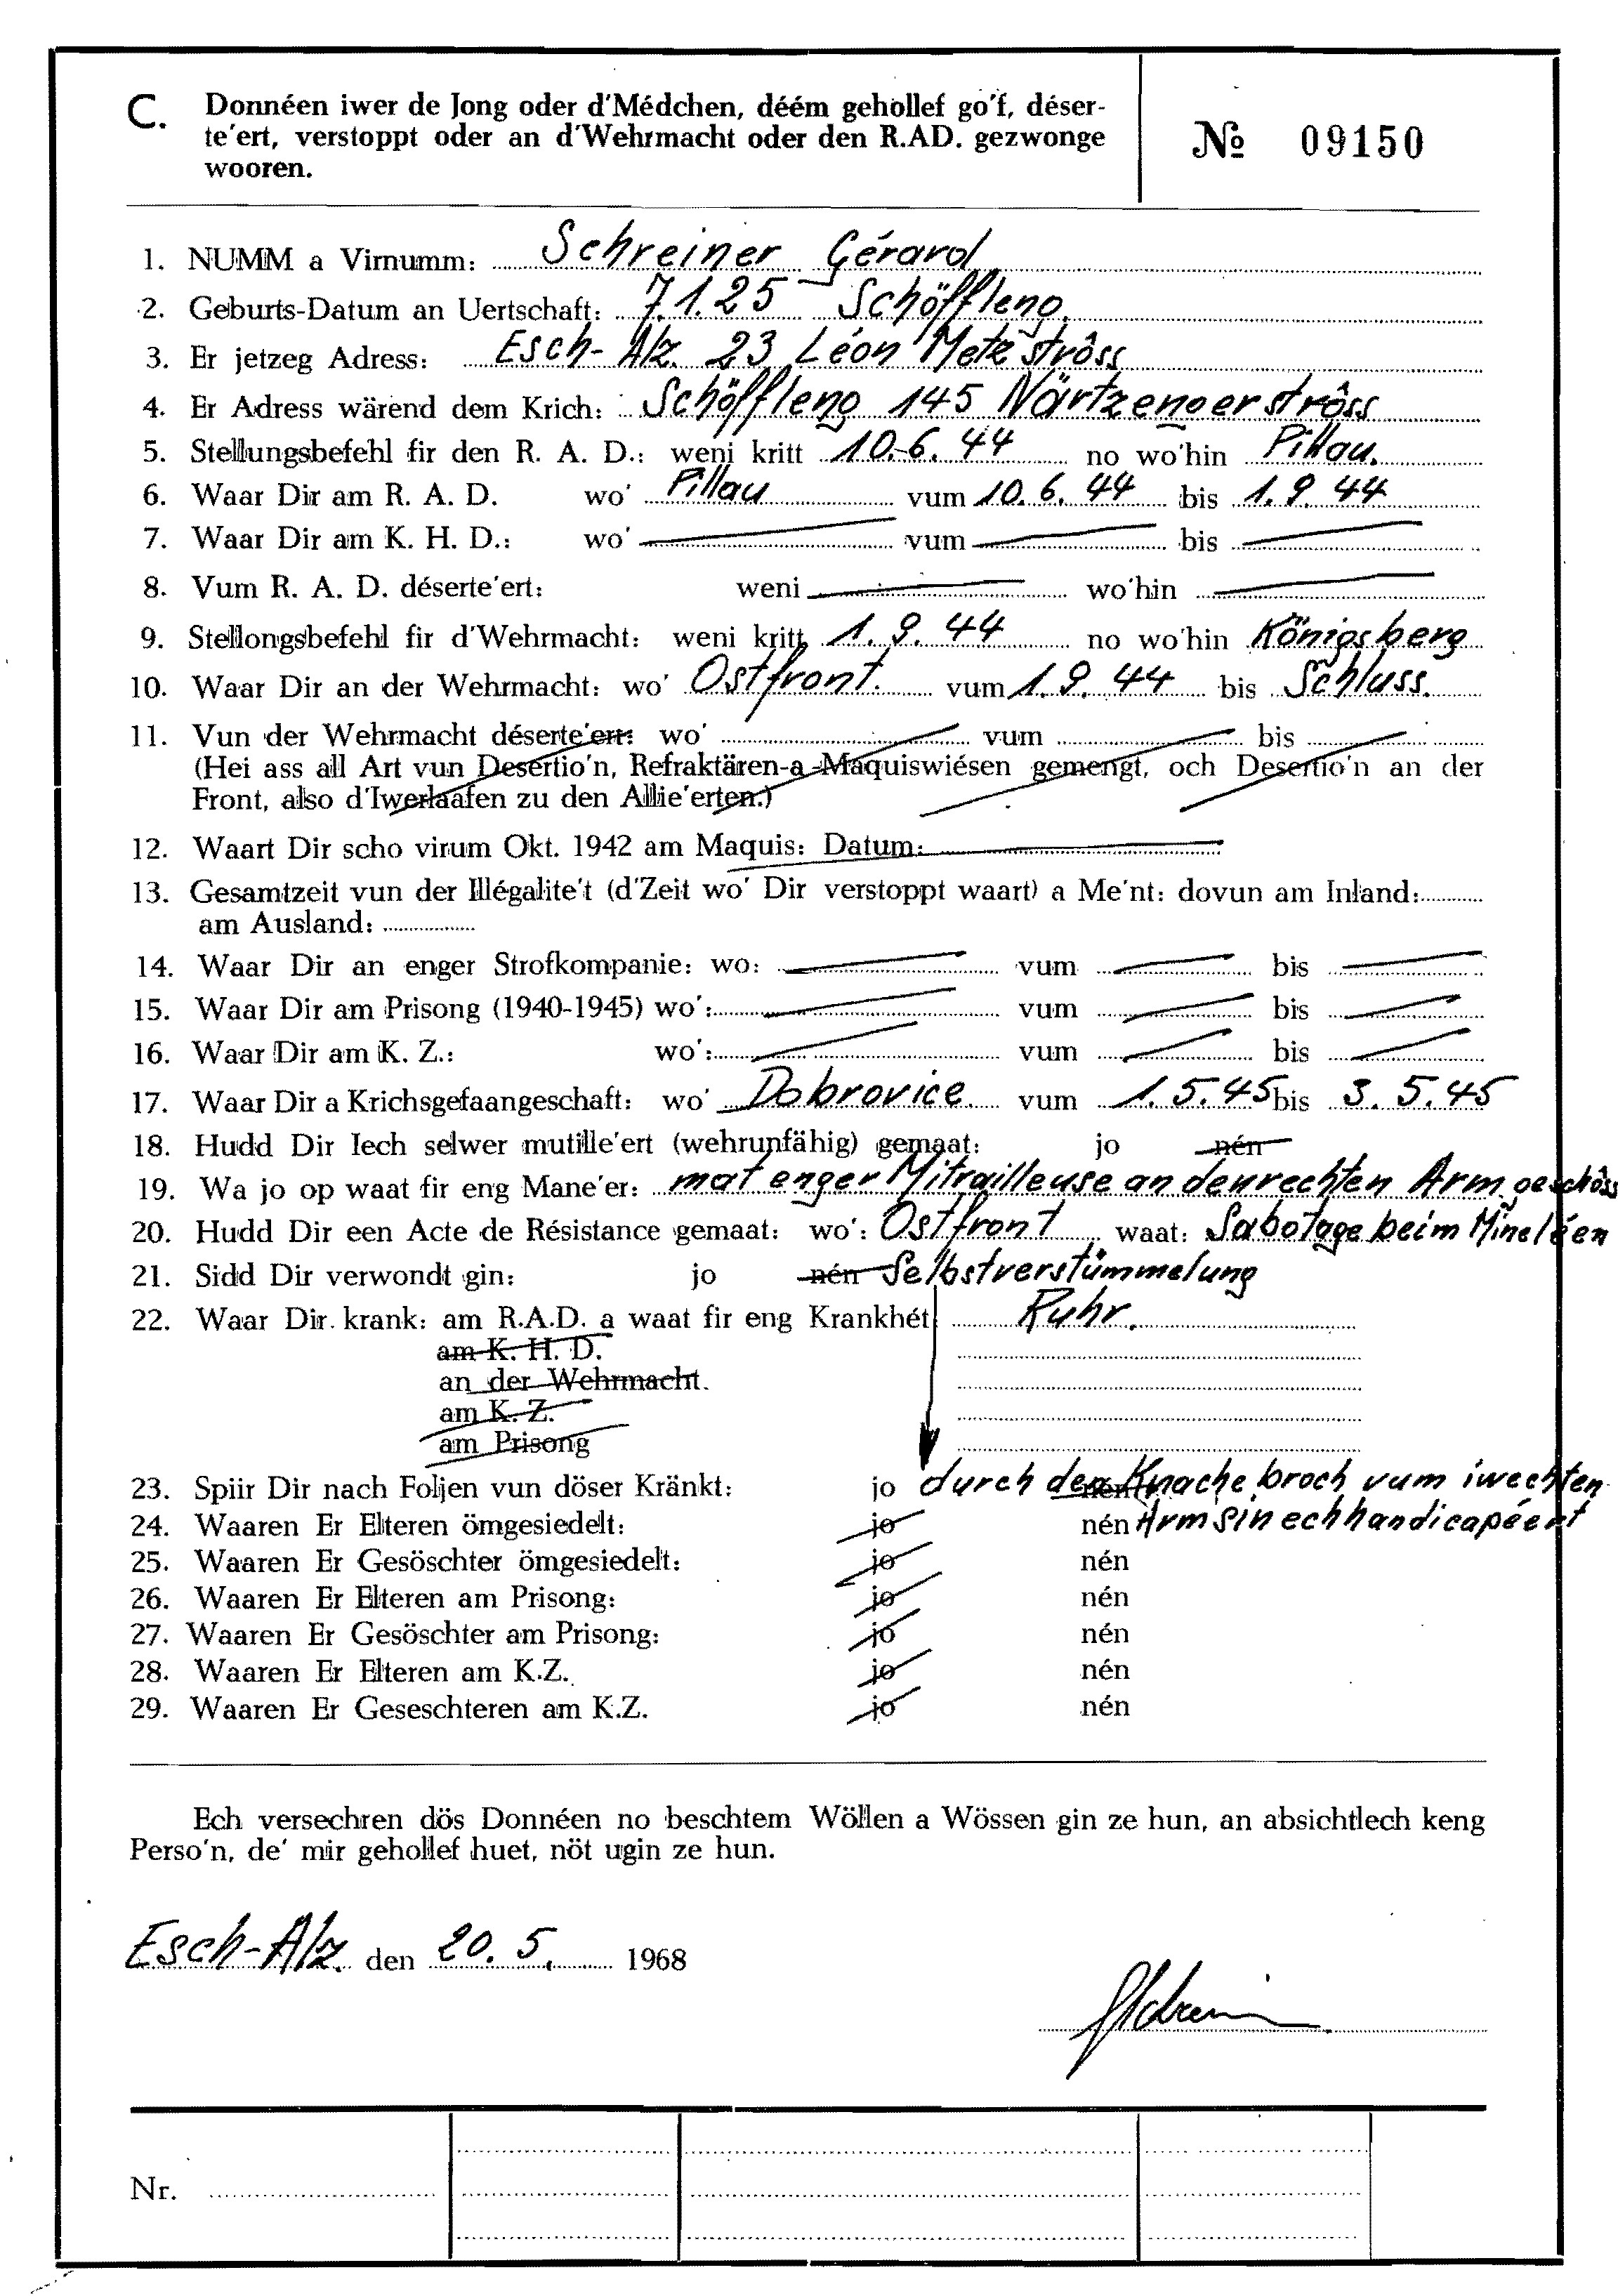 C. Donnéen iwer de Jong oder d'Médchen, déém gehollef go'f, déser-
te'ert, verstoppt oder an d'Wehrmacht oder den R.AD. gezwonge
wooren.
№ 09150
1. NUMM a Virnumm: Schreiner Gérard
2. Geburts-Datum an Uertschaft: 7.1.25 Schöffleng.
3. Er jetzeg Adress: Esch-Alz. 23 Léon Metz strôss
4. Er Adress wärend dem Krich: Schöffleng 145 Närtzengerströss
5. Stellungsbefehl fir den R. A. D.: weni kritt 10.6.44 no wo'hin Pillau.
6. Waar Dir am R. A. D. wo' Pillau vum 10.6.44 bis 1.9.44
7. Waar Dir am K. H. D.: wo' vum bis
8. Vum R. A. D. déserte'ert: weni wo'hin
9. Stellongsbefehl fir d'Wehrmacht: weni kritt 1.9.44 no wo'hin Königsberg
10. Waar Dir an der Wehrmacht: wo' Ostfront. vum 1.9.44 bis Schluss.
11. Vun der Wehrmacht déserte'ert: wo' vum bis
(Hei ass all Art vun Desertio'n, Refraktären-a-Maquiswiésen gemengt, och Desertio'n an der
Front, also d'Iwerlaafen zu den Allie'erten.)
12. Waart Dir scho virum Okt. 1942 am Maquis: Datum:
13. Gesamtzeit vun der Illégalite't (d'Zeit wo' Dir verstoppt waart) a Me'nt: dovun am Inland:
am Ausland:
14. Waar Dir an enger Strofkompanie: wo: vum bis
15. Waar Dir am Prisong (1940-1945) wo': vum bis
16. Waar Dir am K. Z.: wo': vum bis
17. Waar Dir a Krichsgefaangeschaft: wo' Dobrovice. vum 1.5.45 bis 3.5.45
18. Hudd Dir Iech selwer mutille'ert (wehrunfähig) gemaat: jo nén
19. Wa jo op waat fir eng Mane'er: mat enger Mitrailleuse an den rechten Arm geschôss
20. Hudd Dir een Acte de Résistance gemaat: wo': Ostfront waat: Sabotage beim Mineléen
21. Sidd Dir verwondt gin: jo nén Selbstverstümmelung
22. Waar Dir krank: am R.A.D. a waat fir eng Krankhét Ruhr.
am K. H. D.
an der Wehrmacht.
am K. Z.
am Prisong
23. Spiir Dir nach Foljen vun döser Kränkt: jo nén durch den Knachebroch vum iwechten
24. Waaren Er Elteren ömgesiedelt: jo nén Arm sin ech handicapéert
25. Waaren Er Gesöschter ömgesiedelt: jo nén
26. Waaren Er Elteren am Prisong: jo nén
27. Waaren Er Gesöschter am Prisong: jo nén
28. Waaren Er Elteren am K.Z. jo nén
29. Waaren Er Geseschteren am K.Z. jo nén
Ech versechren dös Donnéen no beschtem Wöllen a Wössen gin ze hun, an absichtlech keng
Perso'n, de' mir gehollef huet, nöt ugin ze hun.
Esch-Alz. den 20.5. 1968
Nr.